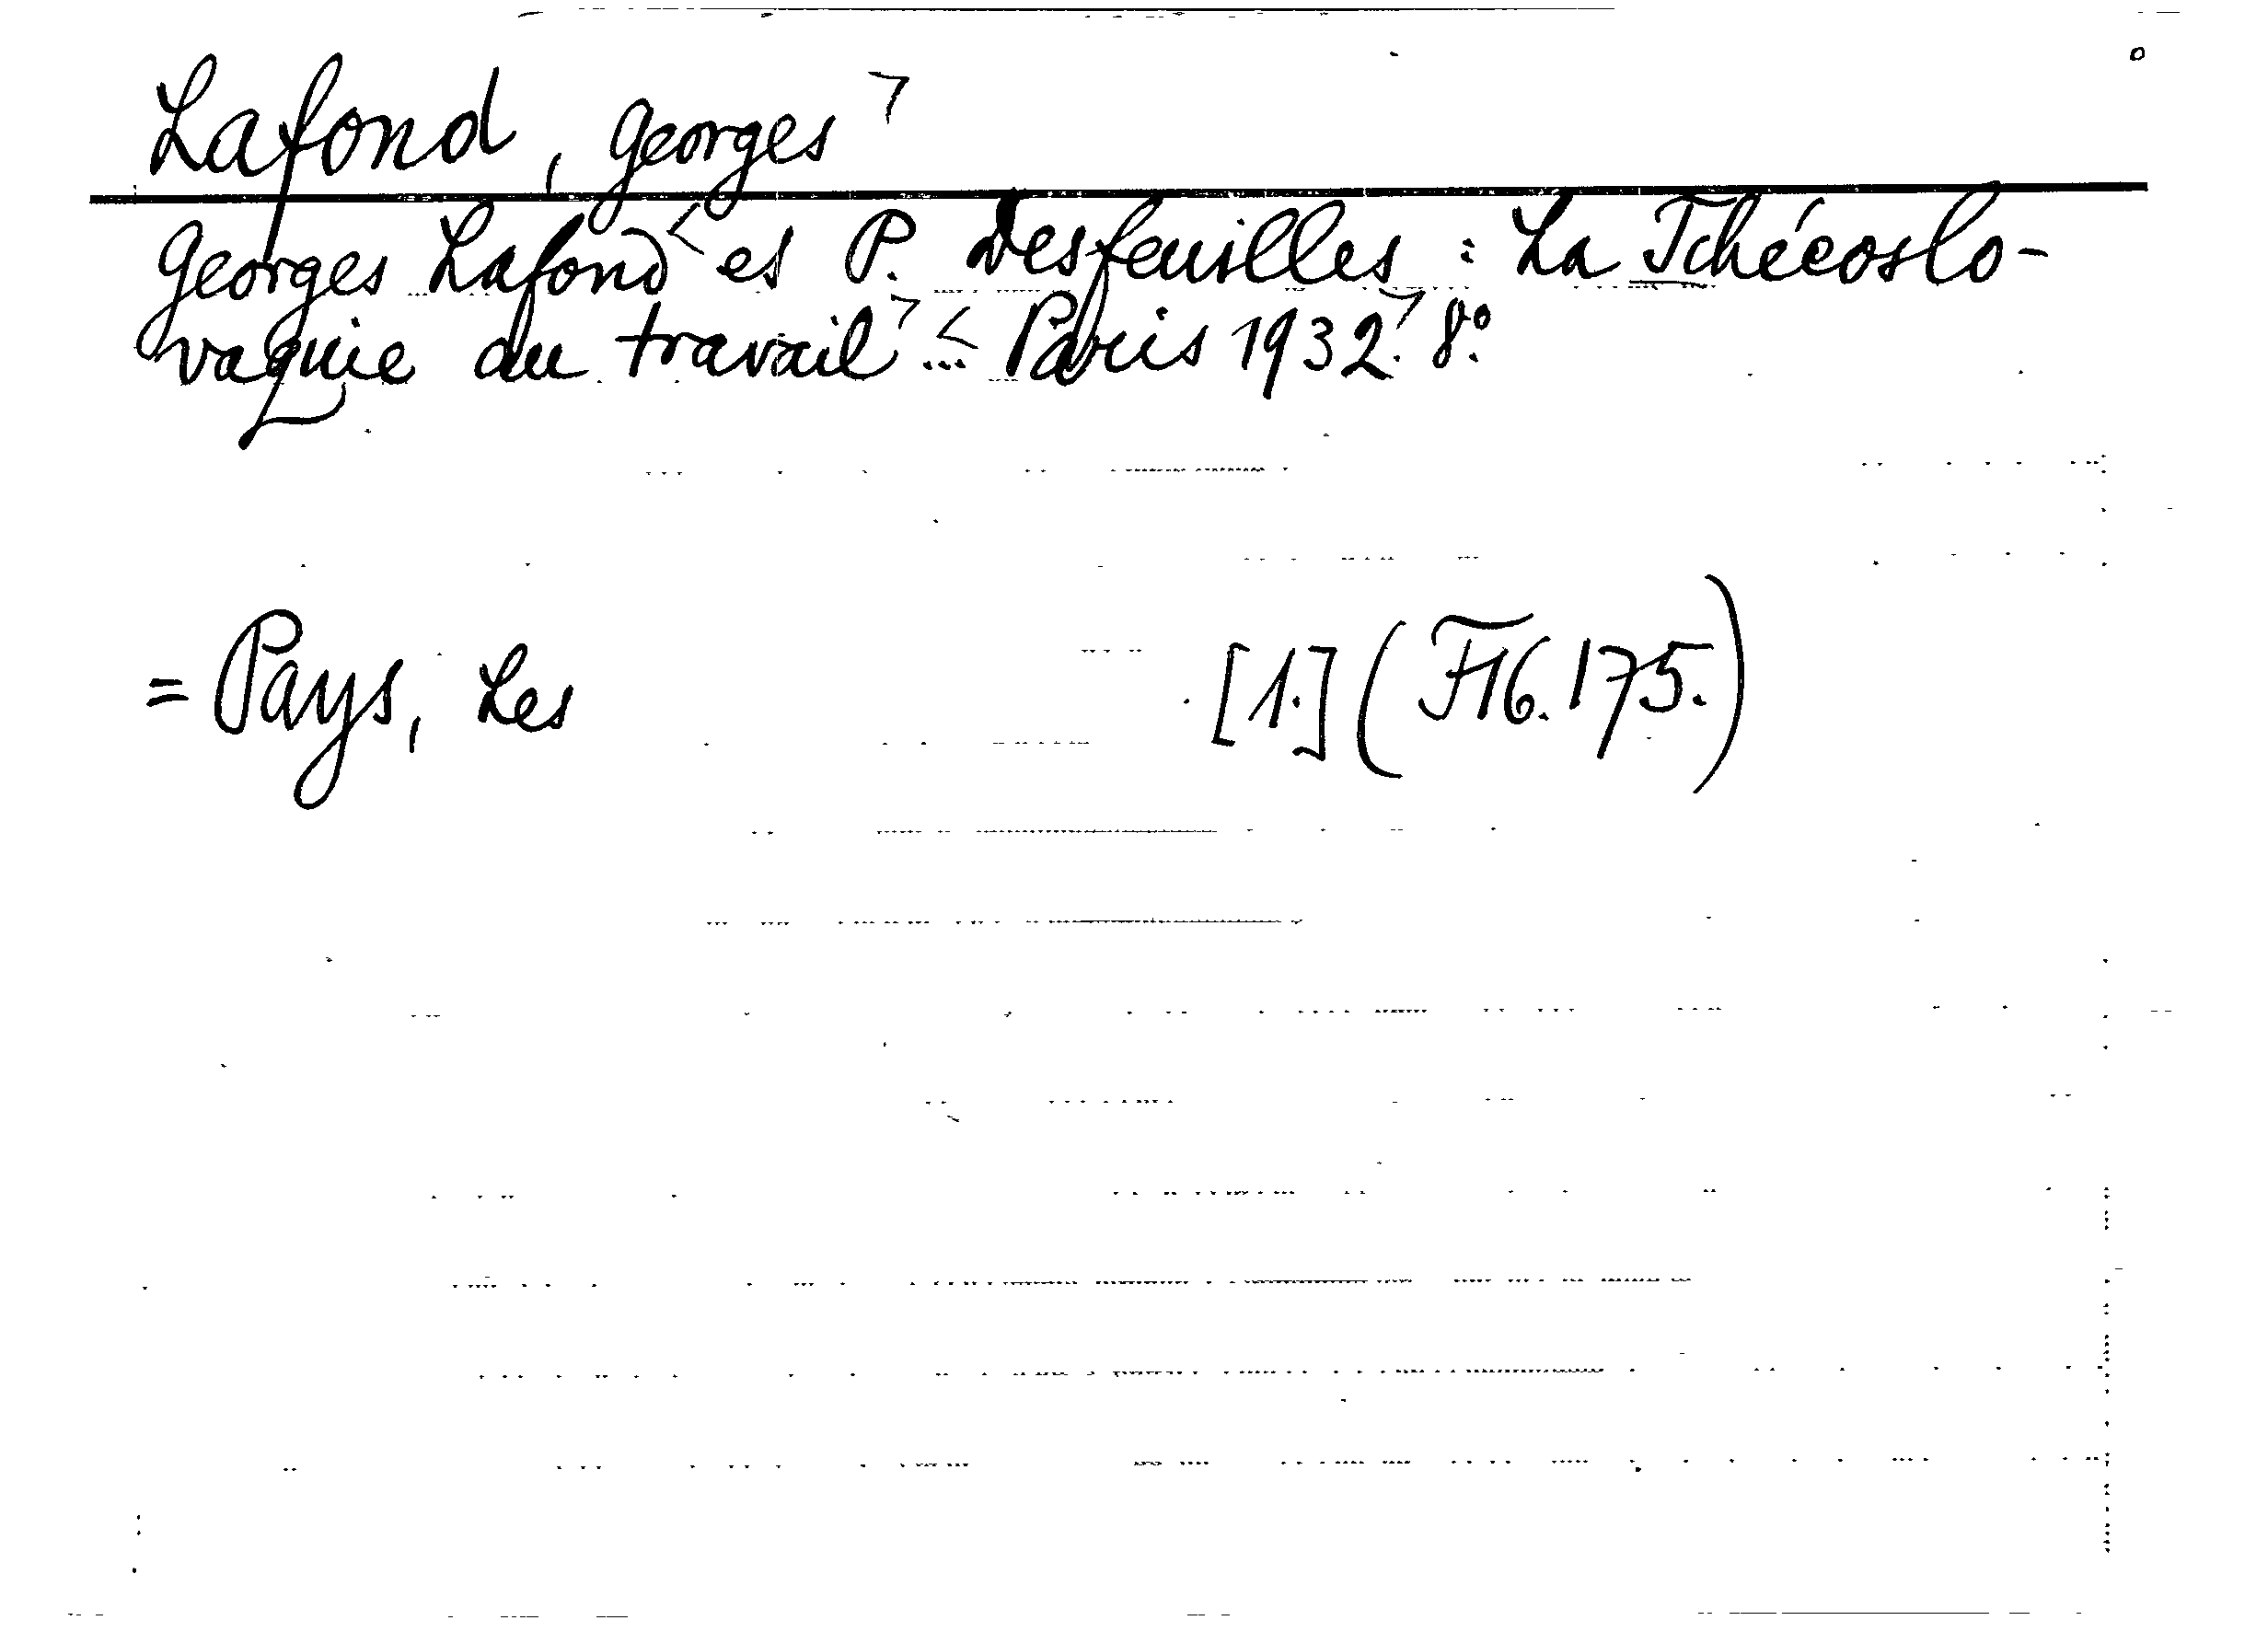 Lafond, Georges ¬
Georges Lafond < et P. Desfeuilles : La Tchécoslo-
vaquie au travail ¬ <... Paris 1932. ¬ 8°.
= Pays, Les [1.] (F16.175.)